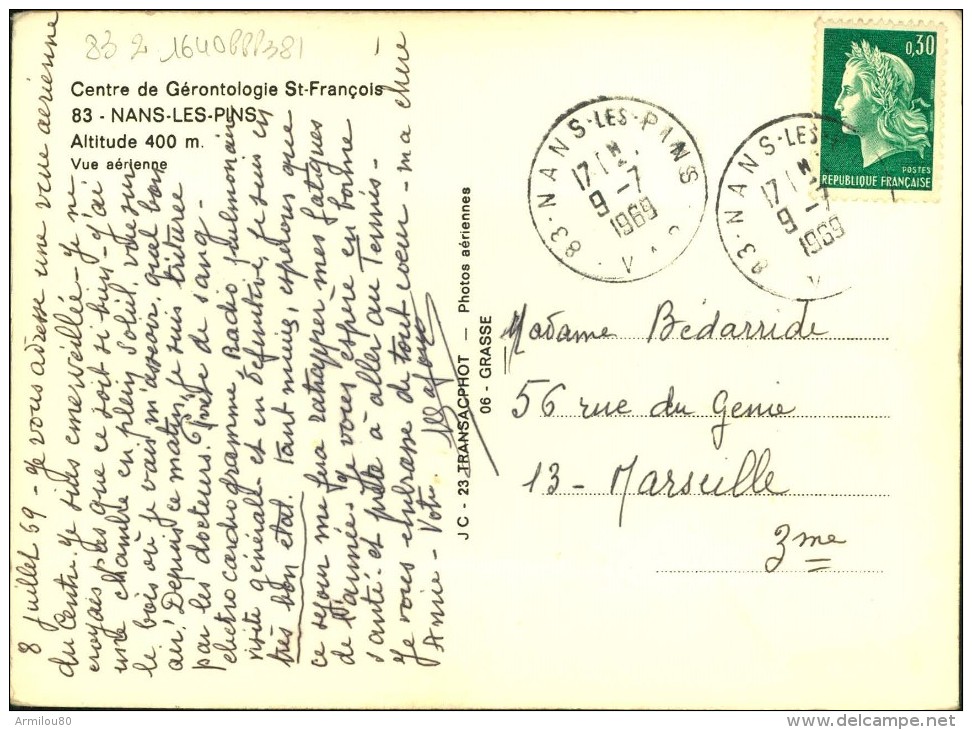 83 2 1640PPP381
Centre de Gérontologie St-François
83 - NANS-LES-PINS
Altitude 400 m.
Vue aérienne
8 juillet 69 - Je vous adresse une vue aérienne
du Centre. Je suis émerveillée - Je ne
croyais pas que ce soit si bien - J'ai
une chambre en plein soleil, vue sur
le bois où je vais m'asseoir, quel bon
air! Depuis ce matin, je suis triturée
par les docteurs. Prise de sang -
électrocardiogramme Radio pulmonaire
visite générale et en définitive, je suis en
très bon état. Tant mieux, espérons que
ce séjour me fera rattraper mes fatigues
de l'année. Je vous espère en bonne
santé et prête à aller au Tennis.
Je vous embrasse de tout coeur - ma chère
Amie - Votre
J C - 23 TRANSACPHOT — Photos aériennes
06 - GRASSE
83 - NANS-LES-PINS
17 H
9 -7
1969
VAR
83 - NANS-LES
17 H
9 -7
1969
V
0,30
POSTES
RÉPUBLIQUE FRANÇAISE
Madame Bédarride
56 rue du Génie
13 - Marseille
3me
Armilou80
delcampe.net